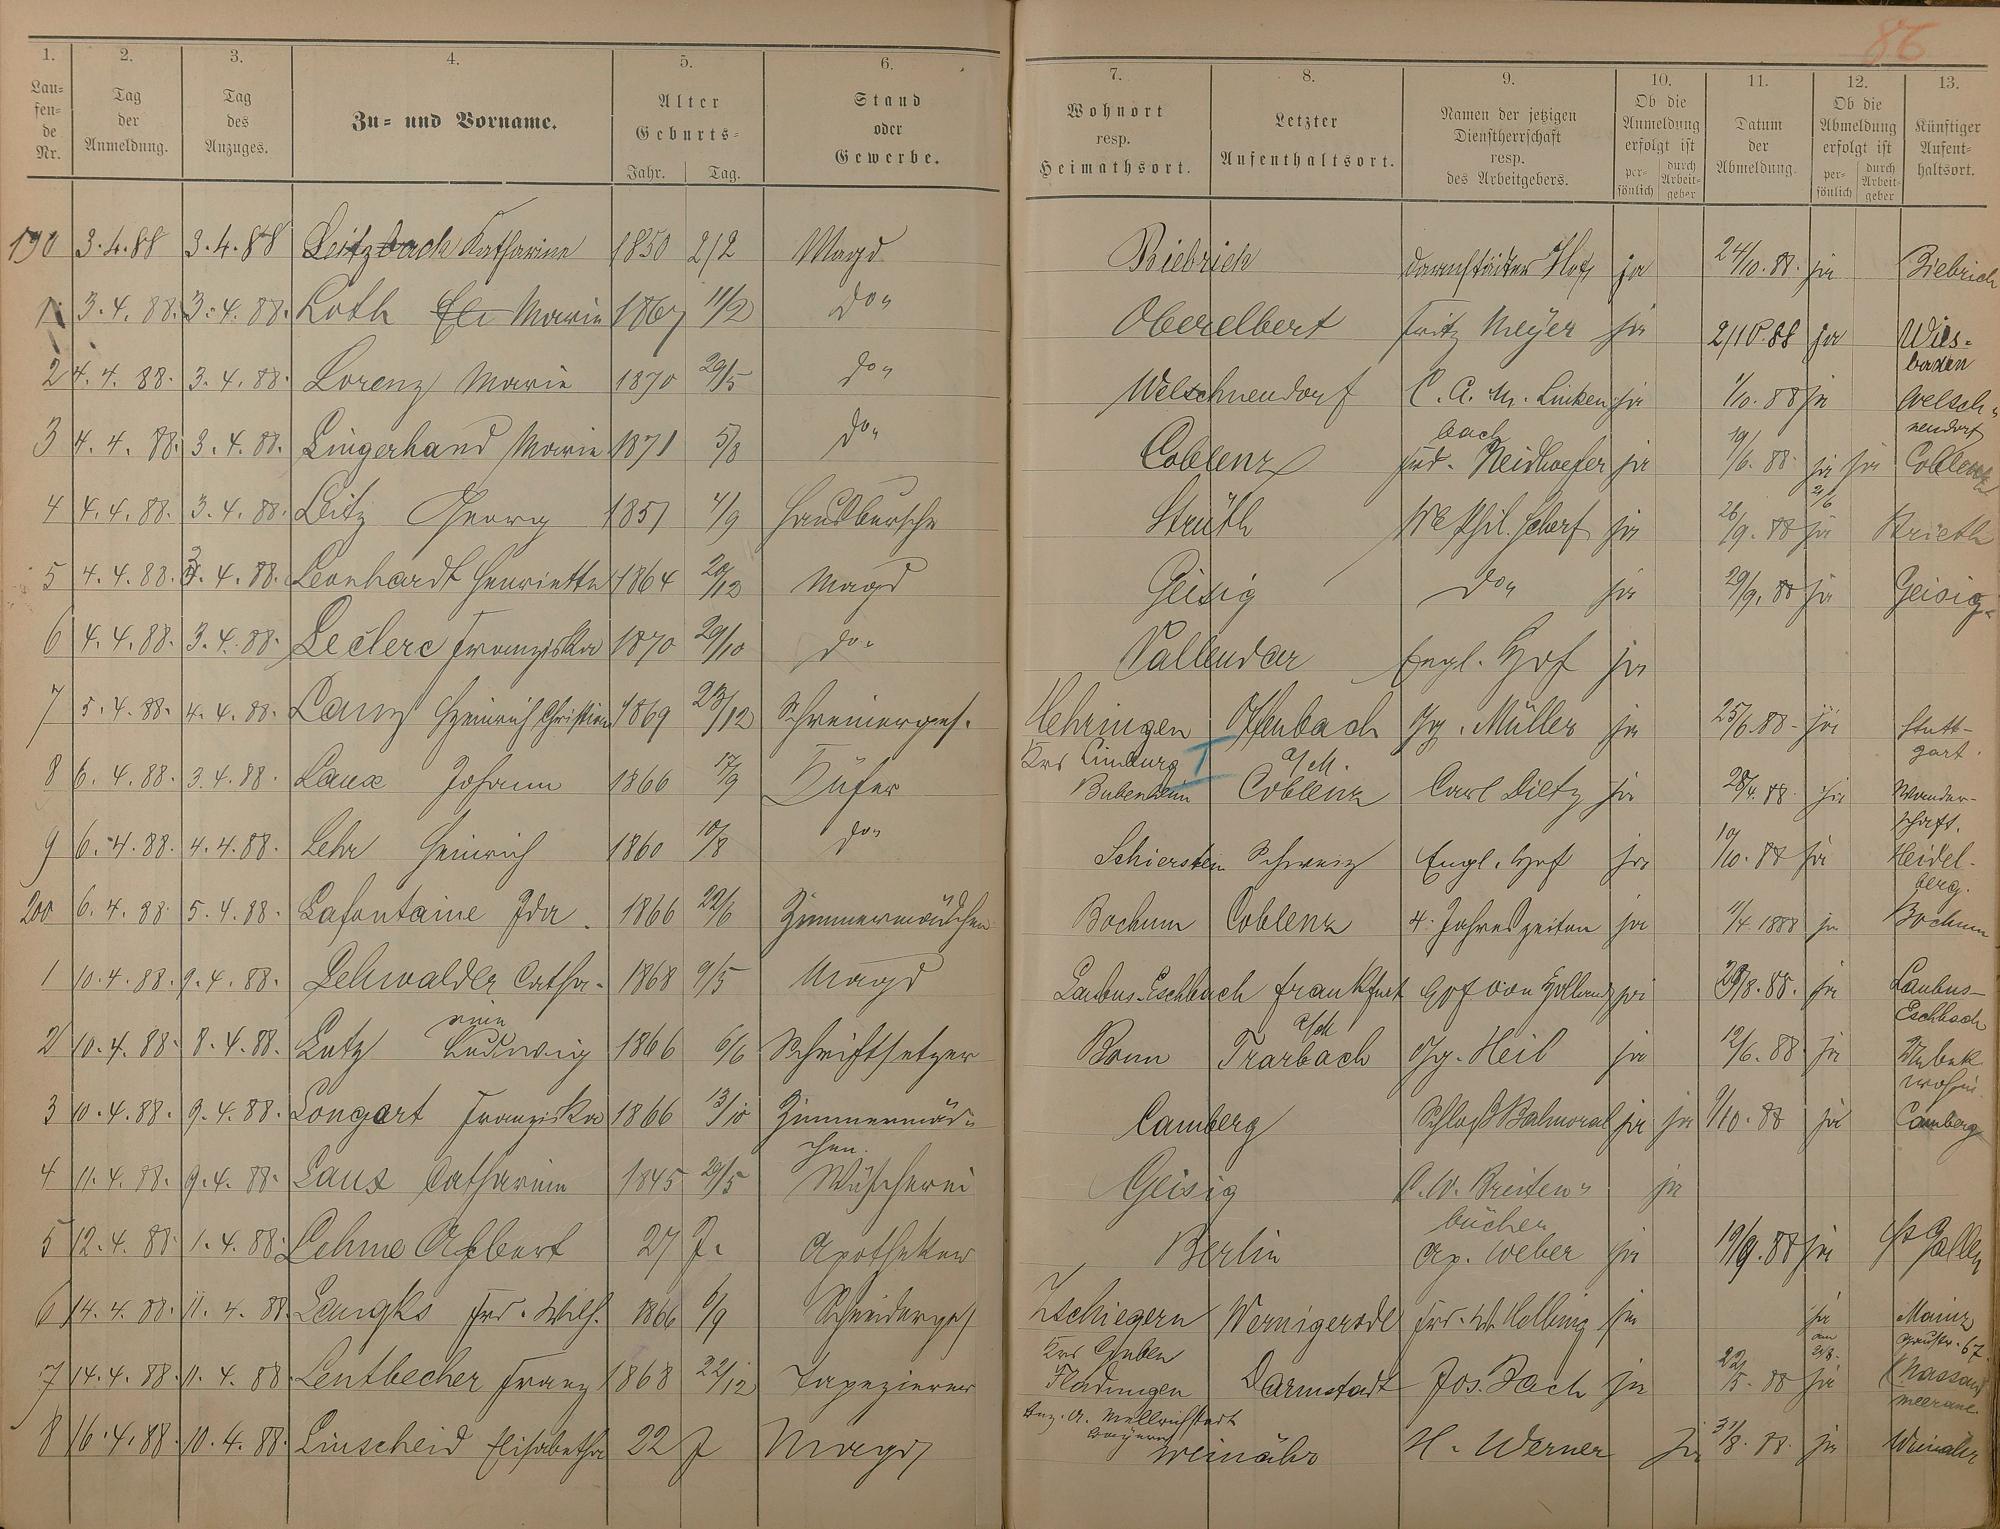 86
1. 2. 3. 4. 5. 6. 7. 8. 9. 10. 11. 12. 13.
Lau=
fen=
de
Nr.
Tag
der
Anmeldung.
Tag
des
Anzuges.
Zu= und Vorname.
Alter
Geburts=
Jahr. Tag.
Stand
oder
Gewerbe.
Wohnort
resp.
Heimathsort.
Letzter
Aufenthaltsort.
Namen der jetzigen
Dienstherrschaft
resp.
des Arbeitgebers.
Ob die
Anmeldung
erfolgt ist
per-
sönlich
durch
Arbeit-
geber
Datum
der
Abmeldung.
Ob die
Abmeldung
erfolgt ist
per-
sönlich
durch
Arbeit-
geber
Künftiger
Aufent-
haltsort.
190 3.4.88 3.4.88 Leitzbach Katharine 1850 2/2 Magd Biebrich Darmstädter Hof ja 24/10.88. ja Biebrich
1 3.4.88. 3.4.88. Loth Marie 1867 11/2 do" Oberelbert Fritz Meyer ja 2/10.88 ja Wies=
baden
2 4.4.88. 3.4.88. Lorenz Marie 1870 29/5 do" Welschneudorf C.A.M. Linken ja 1/10.88 ja Welsch=
bach neudorf
3 4.4.88. 3.4.88. Lingerhand Marie 1871 5/8 do" Coblenz Frd. Neidhoefer ja 19/6.88. ja ja Coblenz
21/6
4 4.4.88. 3.4.88. Leitz Georg 1851 4/9 Hausbursche Strüth We Phil. Scherf ja 26/9.88 ja Strieth
5 4.4.88. 3.4.88. Leonhardt Henriette 1864 20/12 Magd Geisig do" ja 29/9.88 ja Geisig
6 4.4.88. 3.4.88. Leclerc Franziska 1870 29/10 do" Vallendar Engl. Hof ja
7 5.4.88. 4.4.88. Lanz Heinrich Christian 1869 23/12 Schreinerges. Hehringen Offenbach Gg. Müller ja 25/6.88. ja Stutt-
Krs Limburg a/M. gart.
8 6.4.88. 3.4.88. Laux Johann 1866 17/9 Küfer Bubenheim Coblenz Carl Dietz ja 28/4.88. ja Wander-
schaft.
9 6.4.88. 4.4.88. Lehr Heinrich 1860 10/8 do" Schierstein Schweiz Engl. Hof ja 10/10.88 ja Heidel-
berg.
200 6.4.88. 5.4.88. Lafontaine Ida. 1866 22/6 Zimmermädchen Bochum Coblenz 4. Jahreszeiten ja 11/4 1888 ja Bochum
1 10.4.88. 9.4.88. Lehwalder Catha- 1868 9/5 Magd Laubus-Eschbach Frankfurt Hof von Holland ja 29/8.88. ja Laubus-
rine a/M Eschbach
2 10.4.88. 8.4.88. Lutz Ludwig 1866 6/6 Schriftsetzer Bonn Trarbach Gg. Heil ja 12/6.88. ja Unbek.
wohin.
3 10.4.88. 9.4.88. Longart Franziska 1866 13/10 Zimmermäd= Camberg Schloß Balmoral ja ja 9/10.88 ja Camberg
chen.
4 11.4.88. 9.4.88. Laux Catharine 1845 29/5 Wäscherei Geisig C.W. Breiten= ja
bücher
5 12.4.88. 1.4.88. Lehme Albert 27 J. Apotheker Berlin Ap. Weber ja 19/9.88 ja St Gallen
6 14.4.88. 11.4.88. Langks Frd. Wilh. 1866 6/9 Schneiderges Zschiegern Wernigerode Frd. W. Helbing ja ja Mainz
Krs Guben am 21/8.
7 14.4.88. 11.4.88. Lentbecher Franz 1868 22/12 Tapezierer Fladungen Darmstadt Jos. Bach ja 22/5.88 ja
Bez. A. Mellrichstadt
Bayern
8 16.4.88. 10.4.88. Linscheid Elisabetha 22 J Magd Weinähr H. Werner ja 31/8.88. ja Weinähr